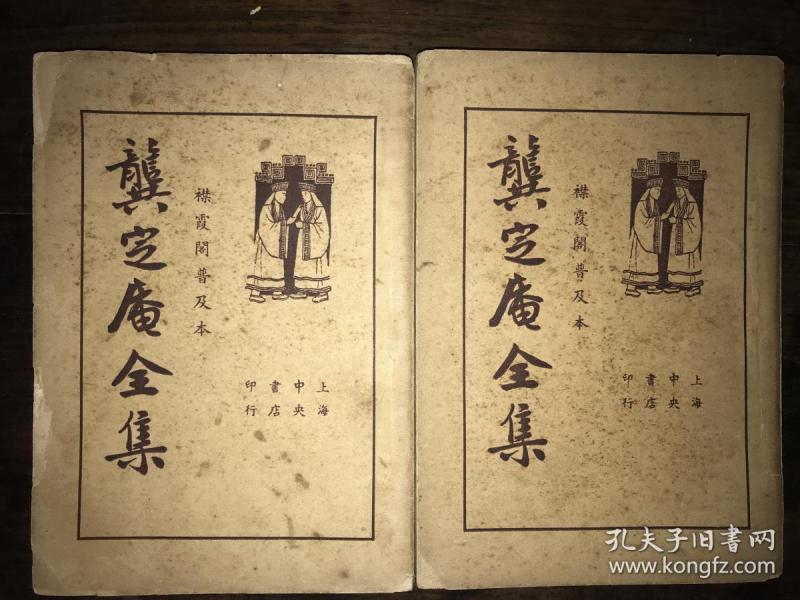 龔定庵全集
襟霞閣普及本
上海
中央
書店
印行
龔定庵全集
襟霞閣普及本
上海
中央
書店
印行
孔夫子旧书网
www.kongfz.com